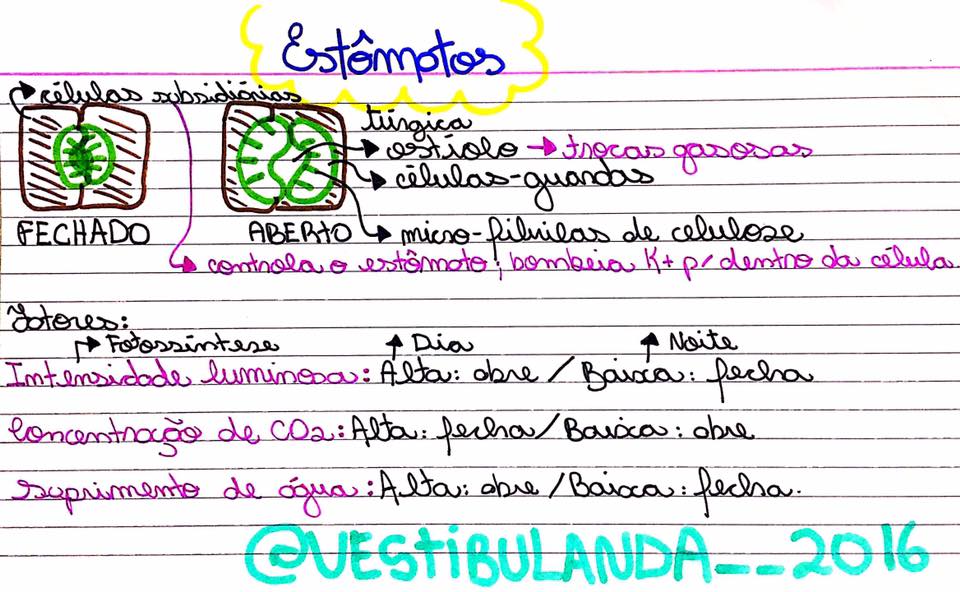 Estômatos
células subsidiárias
túrgica
ostíolo → trocas gasosas
células-guardas
FECHADO
ABERTO
micro-fibrilas de celulose
controla o estômato; bombeia K+ p/ dentro da célula
Fatores:
Fotossíntese
Dia
Noite
Intensidade luminosa: Alta: abre / Baixa: fecha
Concentração de CO2: Alta: fecha / Baixa: abre
suprimento de água: Alta: abre / Baixa: fecha.
@VESTIBULANDA__2016